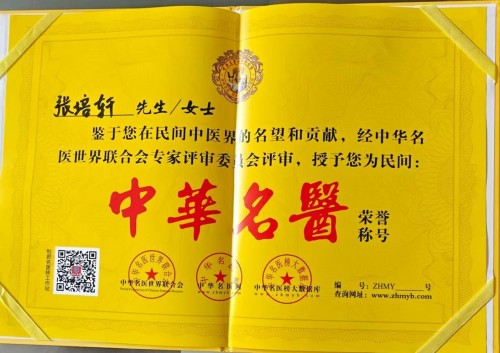 张培轩 先生/女士
鉴于您在民间中医界的名望和贡献，经中华名
医世界联合会专家评审委员会评审，授予您为民间：
中華名醫 荣誉
称号
中华名医世界联合会
中华名医榜大数据库
编 号：ZHMY______号
查询网址：www.zhmyb.com